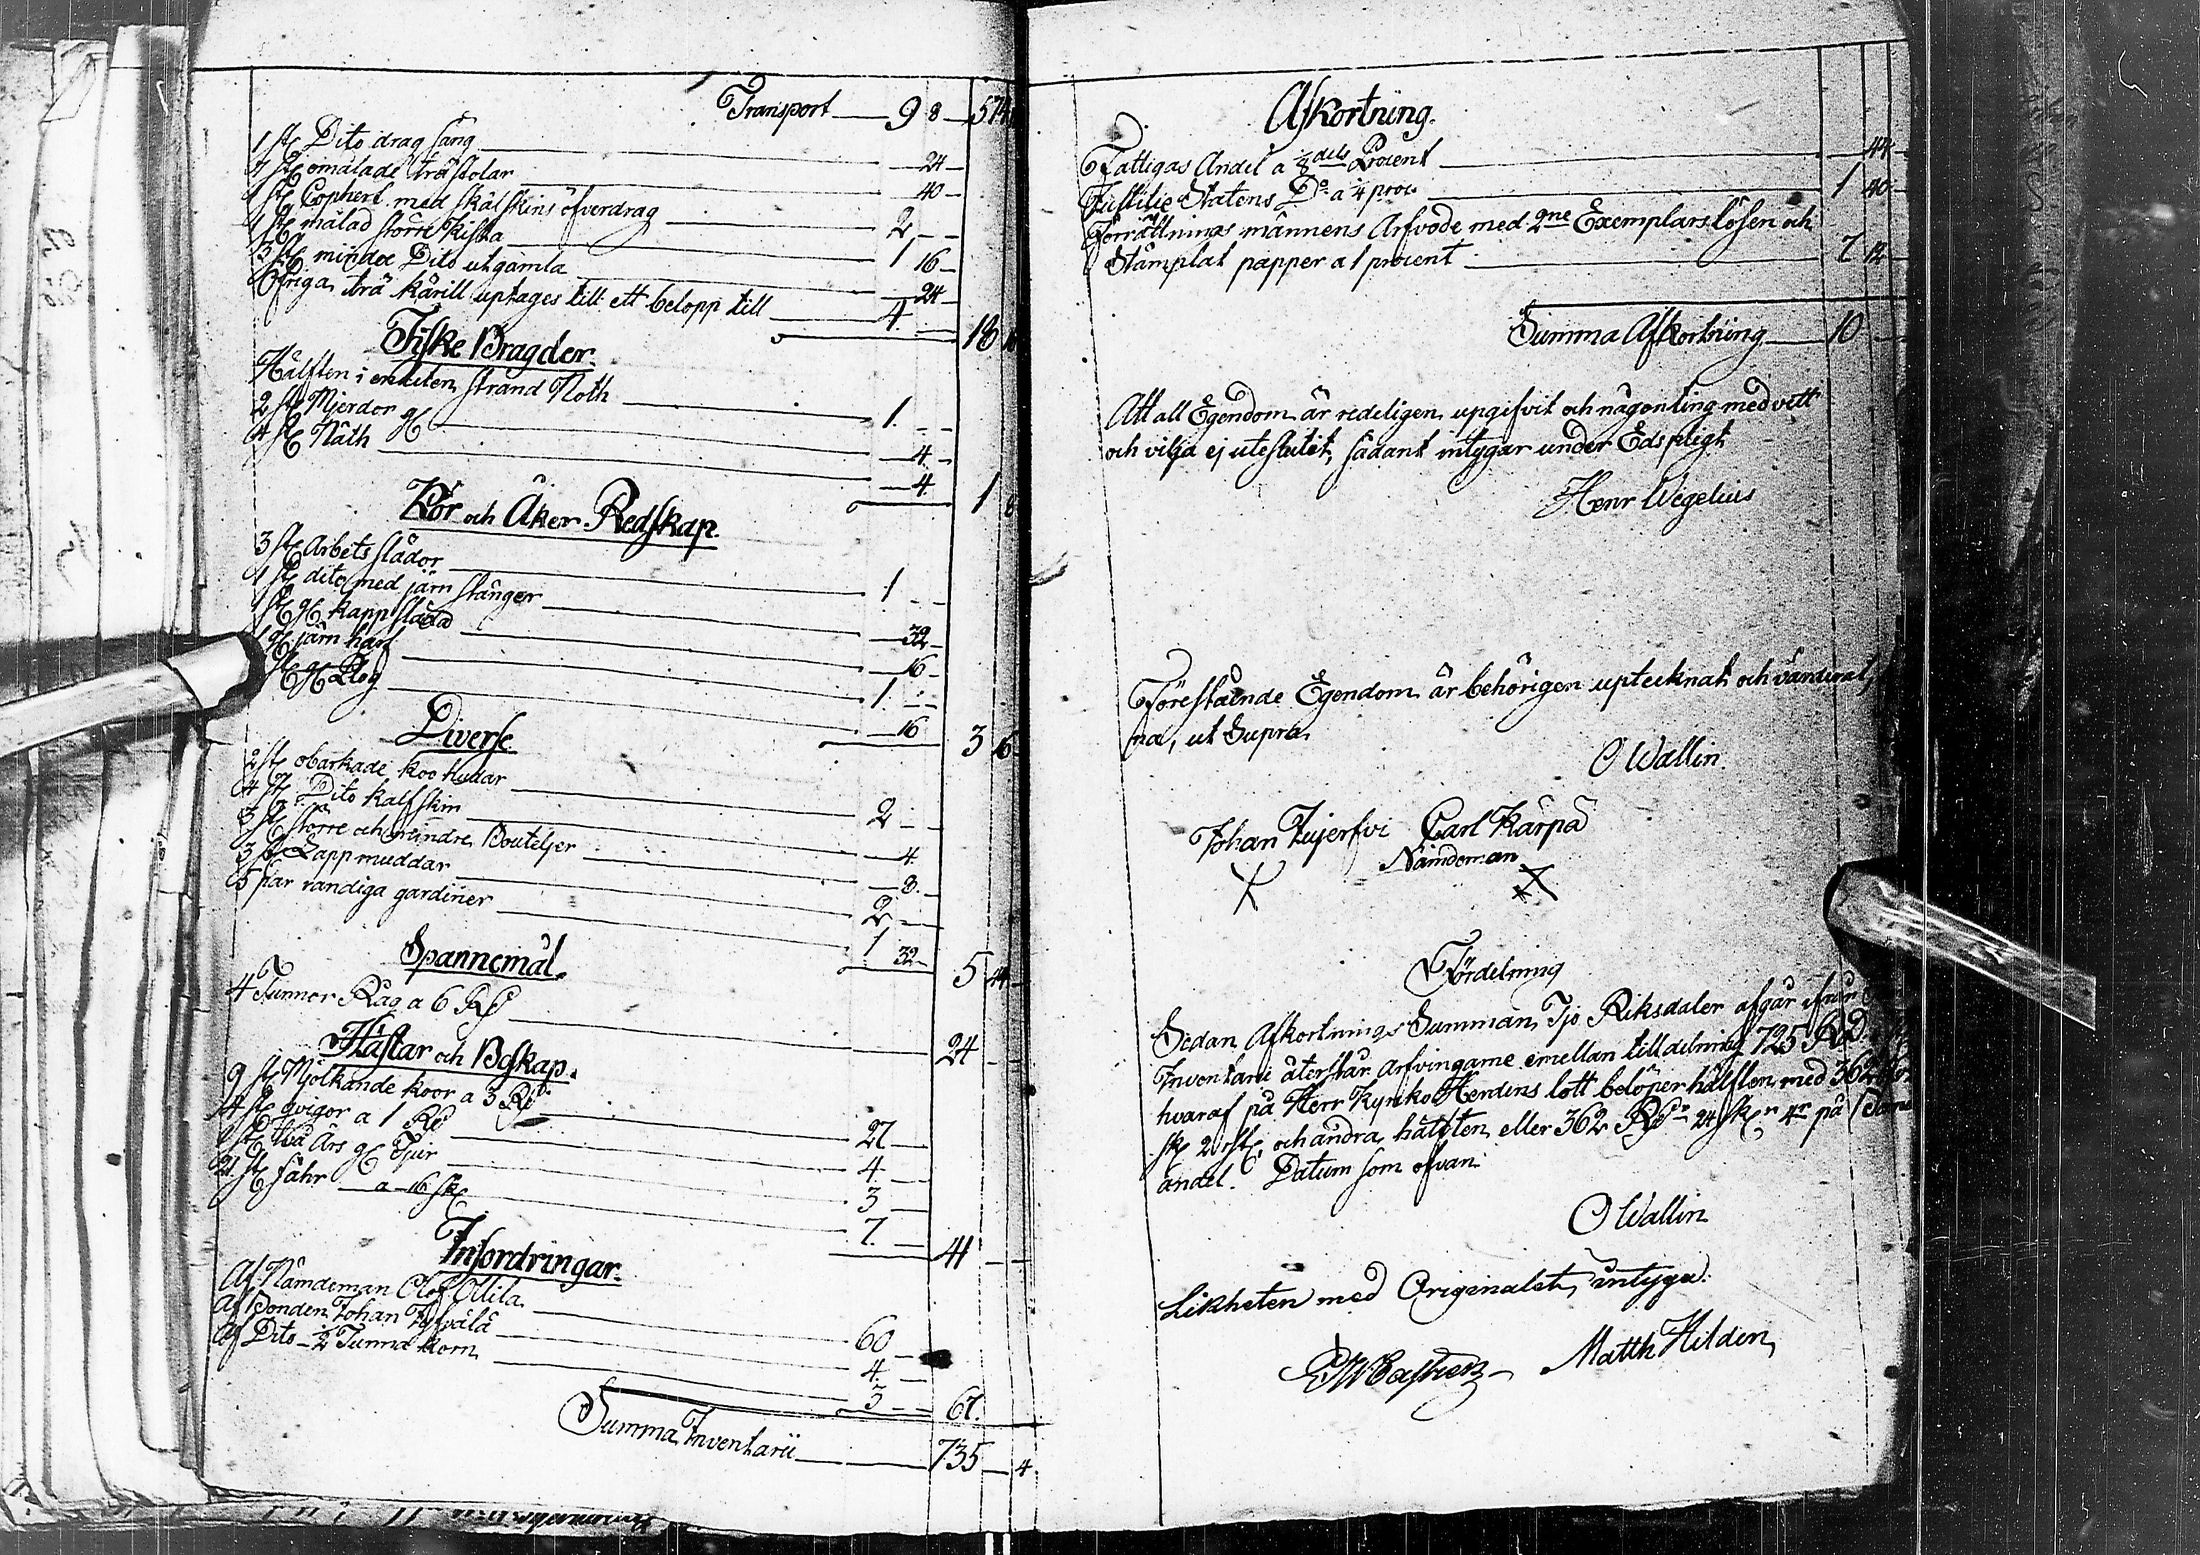 Transport 9 8 574
1 st Dito drag säng 24
4 st omålade trä stolar 40
1 st Cophert med skälskins öfverdrag 2
1 st målad större kista 1 16
3 st mindre Dito utgamla 24
Öfriga trä kärill uptages till ett belopp till 4 18
Fiske Bragder.
Hälften i en liten strand Noth 1
2 st Mjerdor gl 4
4 st Näth 4 1 8
Kör och Åker Redskap.
3 st Arbets slädor 1
1 st dito med järn stänger 32
1 st gl kapp släda 16
1 gl järn harf 1
1 st gl Plog 16 3 16
Diverse
2 st obarkade koo hudar 2
4 st Dito kalfskin 4
3 st större och mindre Bouteljer 8
3 st Lappmuddar 2
5 par randiga gardiner 1 32 5 44
Spannemål.
4 Tunnor Råg a 6 Rd 24
Hästar och Boskap.
9 st Mjölkande koor a 3 Rd 27
4 st qvigor a 1 Rd 4
1 st två Års gl Tjur 3
21 st fåhr a 16 sk 7 41
Infordringar.
Af Nämdeman Olof Ollila 60
Af Bonden Johan 4
Af Dito ½ Tunna korn 3 67
Summa Inventarii 735 4
Afkortning.
Fattigas Andel a ⅛ dels Procent 44
Justitie Statens Do a ¼ proc 1 40
Förrättnings männens Arfvode med 2ne Exemplars lösen och
Stämplat papper a 1 procent 7 12
Summa Afkortning 10
Att all Egendom är redeligen upgifvit och någonting med vett
och vilja ej uteslutit, sådant intygar under Eds pligt
Henr Wegelius
Förestående Egendom är behörigen uptecknat och värderat
na, ut Supra.
O Wallin.
Johan Zujerfvi Carl Kärpä
Nämdeman
X X
Fördelning
Sedan Afkortnings Summan, Tjo Riksdaler afgår ifrån
Inventarii återstår Arfvingarne emellan till delning 725 Rd
hvaraf på Herr Kyrko Herdens lott belöper hälften med 362
sk 2 rst, och andra hälften eller 362 Rdr 24 sk 4r på
andel. Datum som ofvan.
O Wallin
Likheten med Originalet, intyga:
Matth Hilden